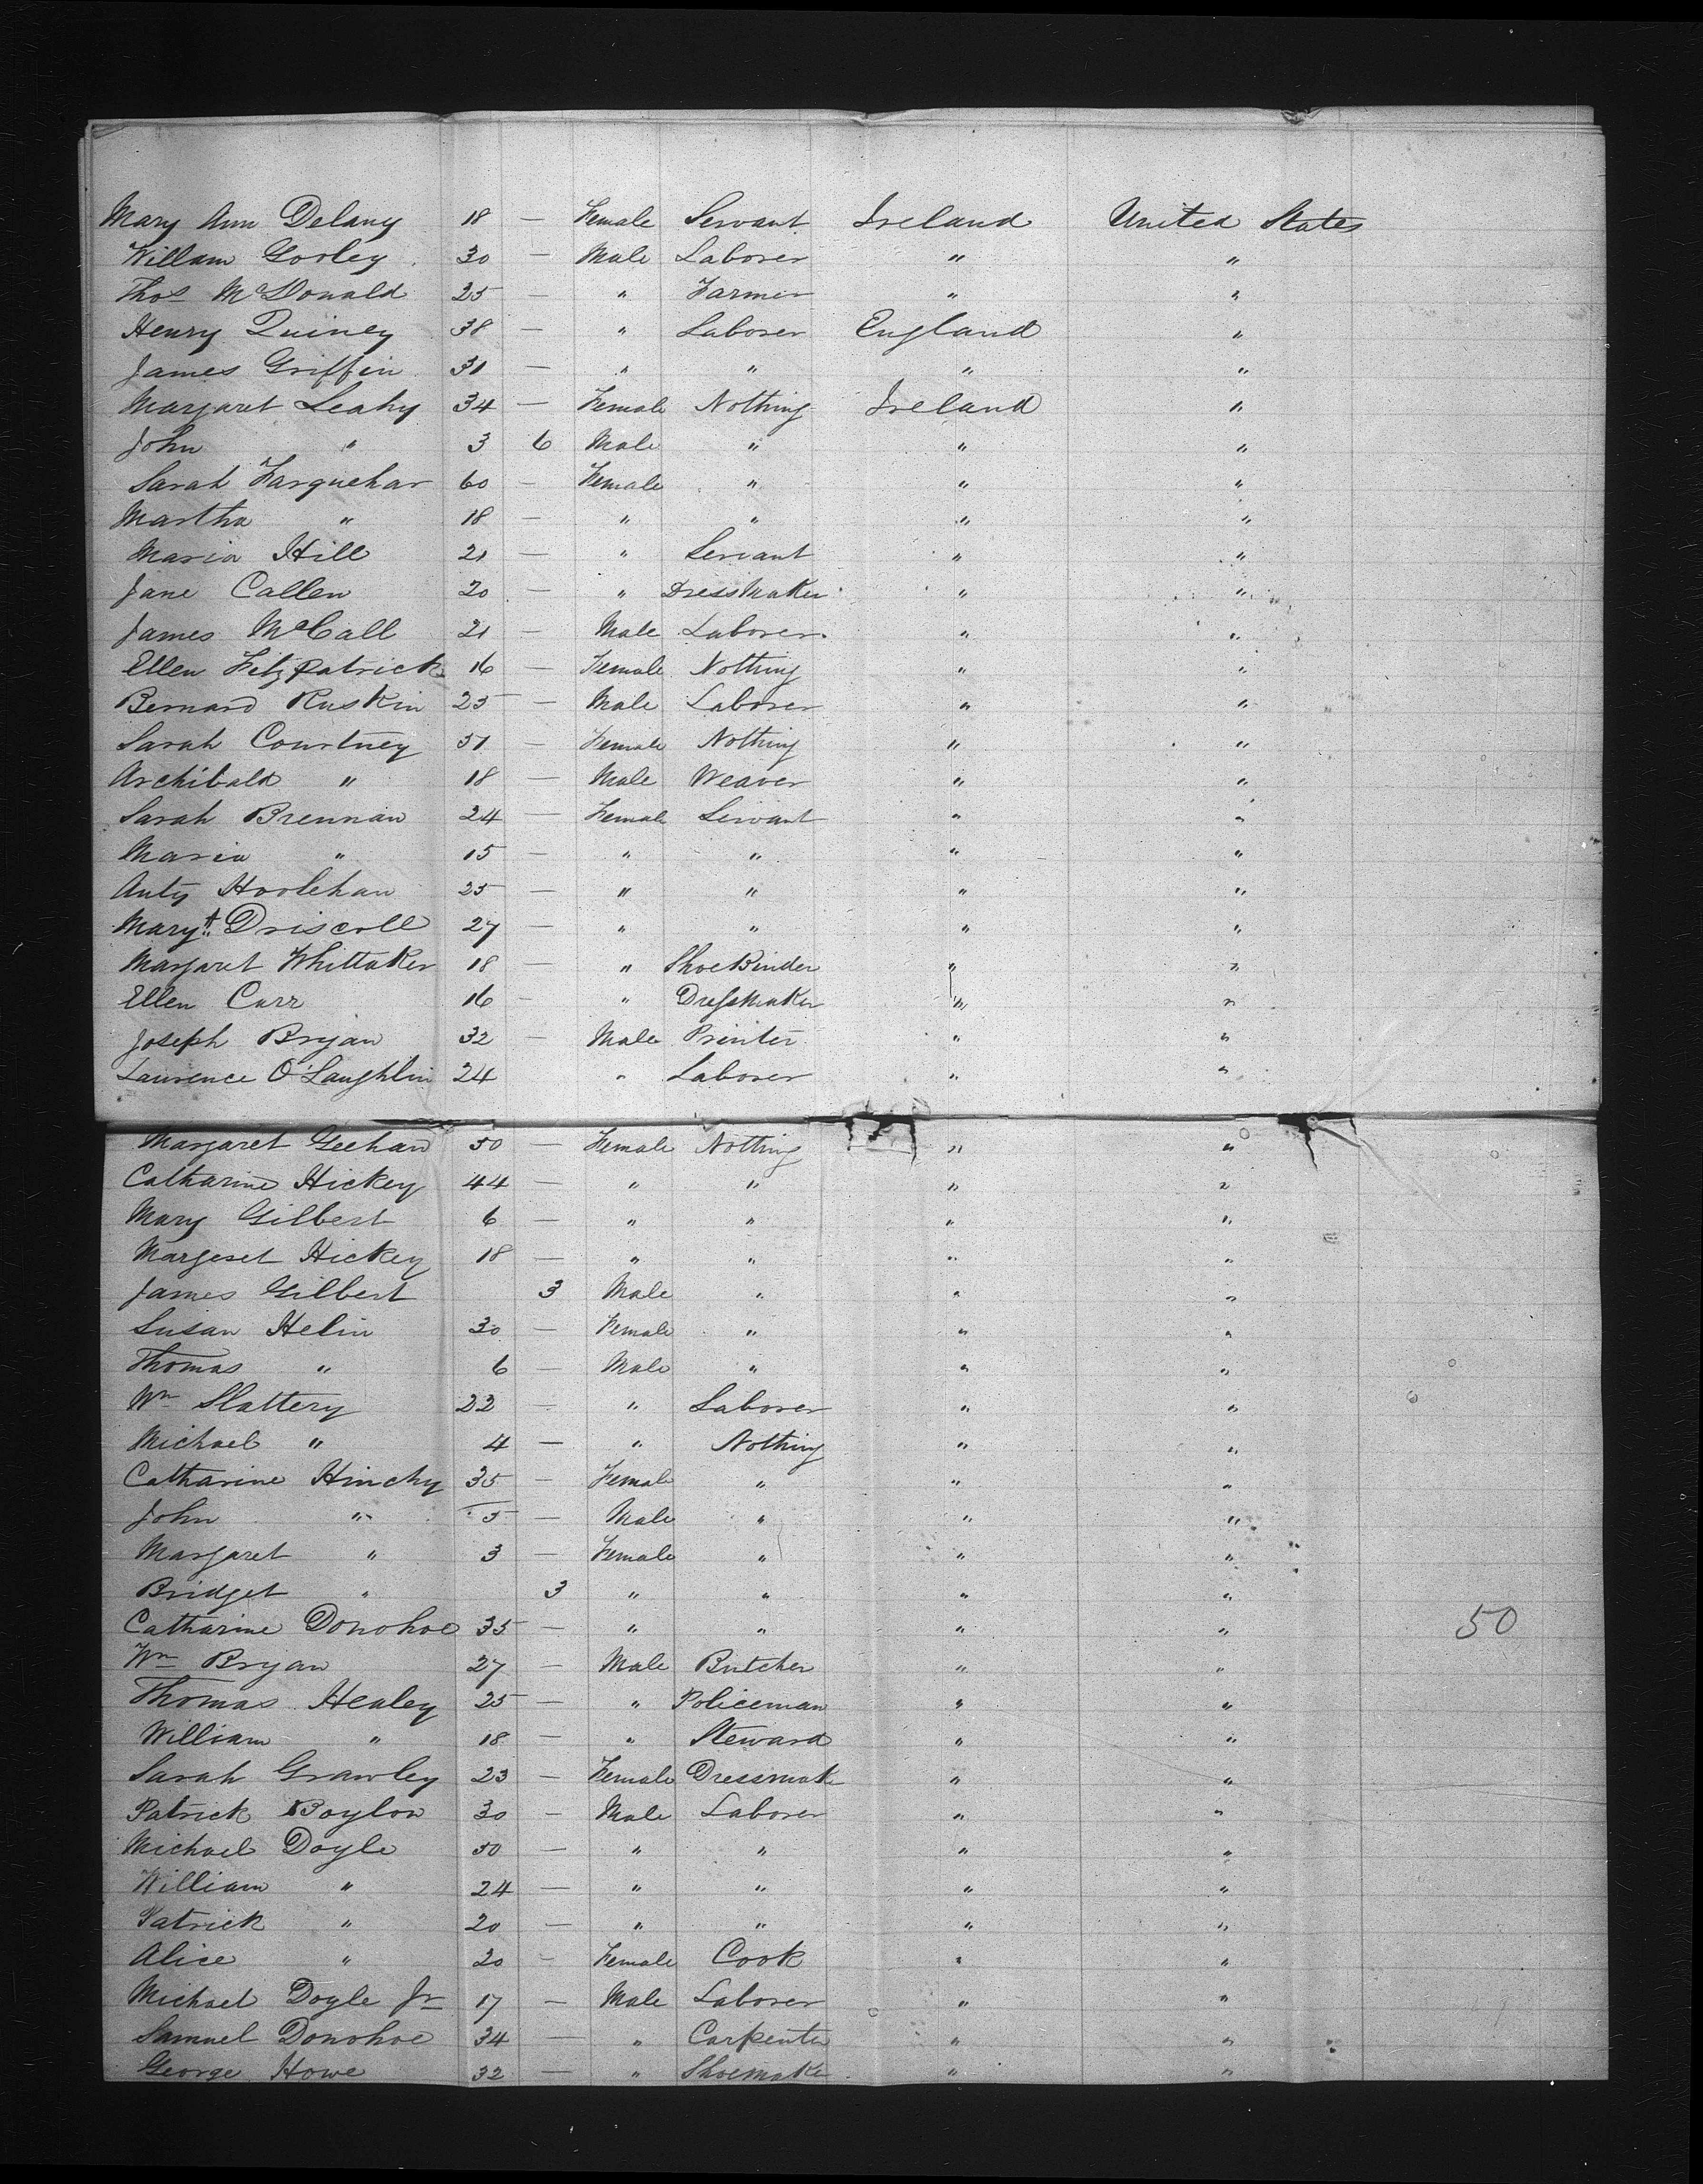 Mary Ann Delany 18 — Female Servant Ireland United States
Willam Gorley 30 — Male Laborer " "
Thos McDonald 25 — " Farmer " "
Henry Quiney 38 — " Laborer England "
James Griffin 31 — " " " "
Margaret Leahy 34 — Female Nothing Ireland "
John " 3 6 Male " " "
Sarah Farquehar 60 — Female " " "
Martha " 18 — " " " "
Maria Hill 21 — " Servant " "
Jane Callen 20 — " DressMaker " "
James McCall 21 — Male Laborer " "
Ellen Fitzpatrick 16 — Female Nothing " "
Bernard Ruskin 25 — Male Laborer " "
Sarah Courtney 51 — Female Nothing " "
Archibald " 18 — Male Weaver " "
Sarah Brennan 24 — Female Servant " "
Maria " 15 — " " " "
Anty Hoolehan 25 — " " " "
Mary A. Driscoll 27 — " " " "
Margaret Whittaker 18 — " ShoeBinder " "
Ellen Carr 16 — " Dressmaker " "
Joseph Bryan 32 — Male Printer " "
Laurence O'Laughlin 24 " Laborer " "
Margaret Geehan 50 — Female Nothing " "
Catharine Hickey 44 — " " " "
Mary Gilbert 6 — " " " "
Margeret Hickey 18 — " " " "
James Gilbert 3 Male " " "
Susan Helin 30 — Female " " "
Thomas " 6 — Male " " "
Wm Slattery 22 — " Laborer " "
Michael " 4 — " Nothing " "
Catharine Hinchy 35 — Female " " "
John " 5 — Male " " "
Margaret " 3 — Female " " "
Bridget " 3 " " " "
Catharine Donohoe 35 — " " " " 50
Wm Bryan 27 — Male Butcher " "
Thomas Healey 25 — " Policeman " "
William " 18 — " Steward " "
Sarah Grawley 23 — Female Dressmak " "
Patrick Boylon 30 — Male Laborer " "
Michael Doyle 50 — " " " "
William " 24 — " " " "
Patrick " 20 — " " " "
Alice " 20 — Female Cook " "
Michael Doyle Jr 17 — Male Laborer " "
Samuel Donohoe 34 — " Carpenter " "
George Howe 32 — " Shoemaker " "